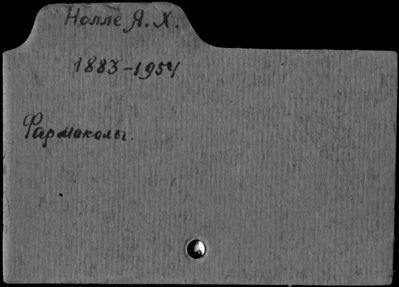 Нолле Я. Х.
1883-1954
Фармаколог.